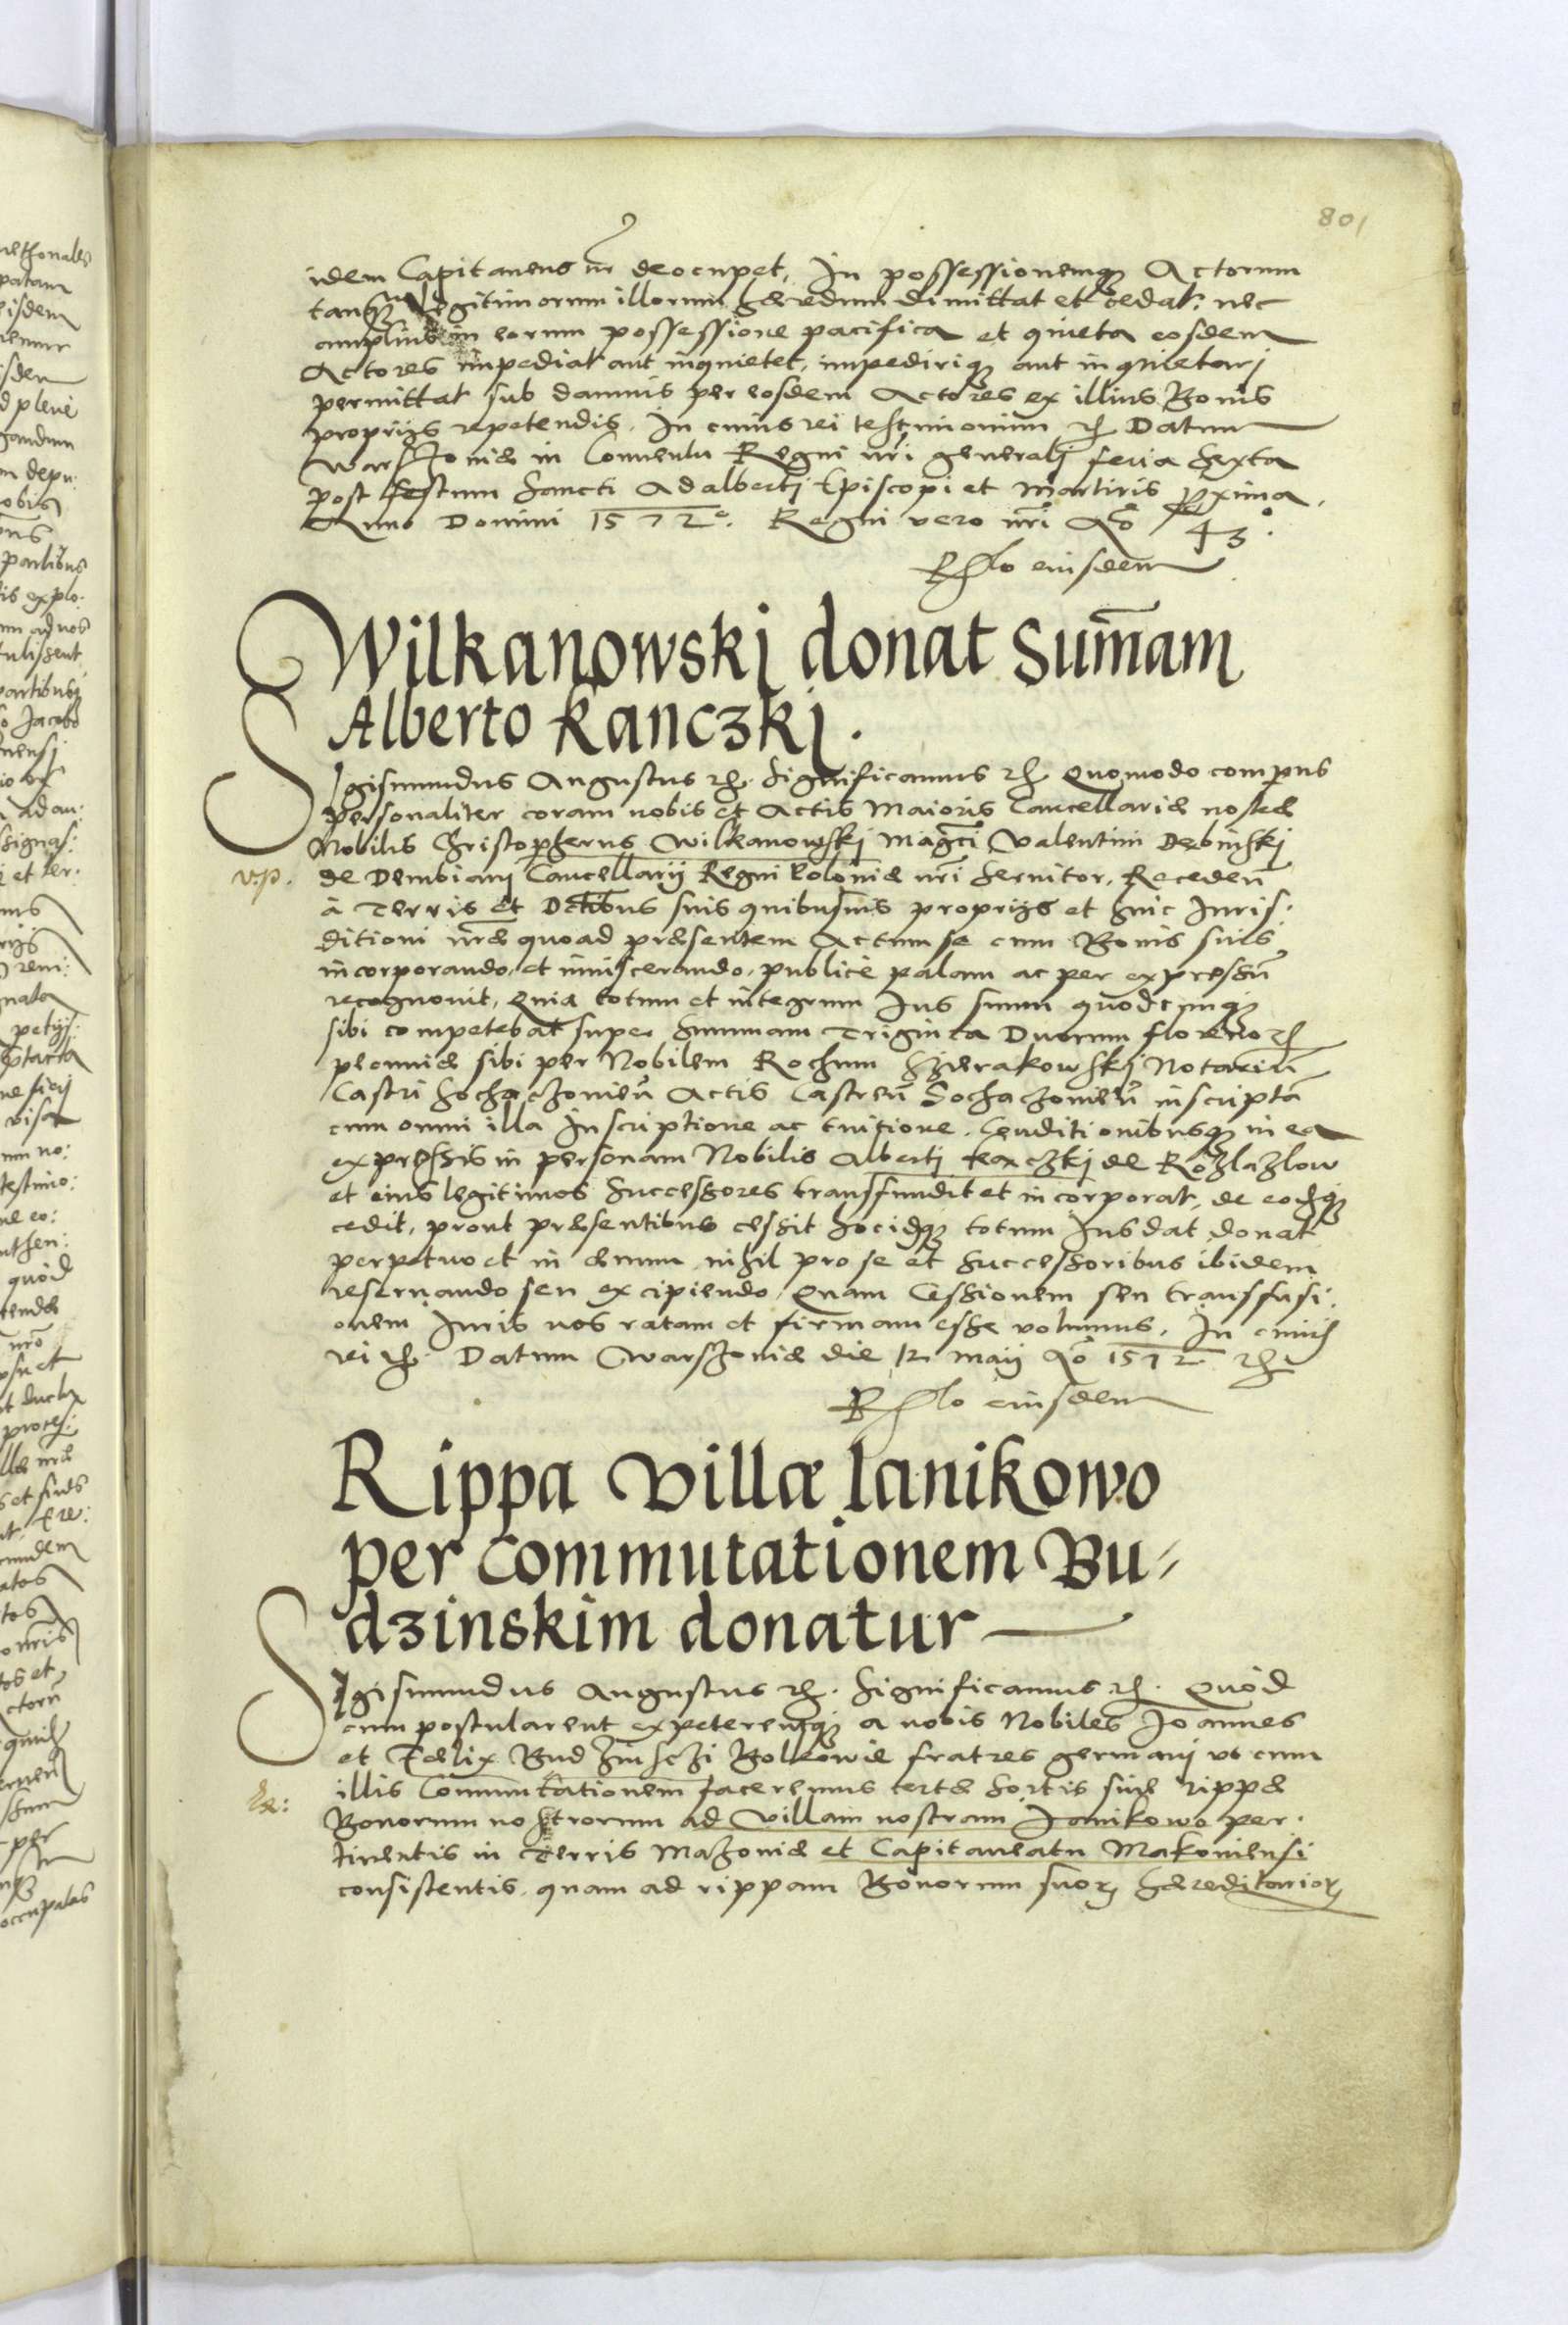 801
idem Capitaneus nr deocupet, In possessionemq Actorum
tanq legitimorum illorum hæredum dimittat et cedat: nec
amplius in eorum possessione pacifica et quieta eosdem
Actores impediat aut inquietet, impediriq aut inquietarj
permittat sub damnis per eosdem Actores ex illius Bonis
proprijs repetendis. In cuius rei testimonium rh Datum
Warschoviæ in Conventu Regni nri generalj feria Sexta
post Festum Sancti Adalbertj Episcopi et Martiris pxima,
Anno Domini 1572º. Regni vero nri Aº 43º.
Rlo eiusdem
Wilkanowskj donat Sumam
Alberto Kanczkj.
Sigismundus Augustus rh. Significamus rh Quomodo comprns
personaliter coram nobis et Actis Maioris Cancellariæ nostræ
Nobilis Christopherus Wilkanowskj Magci Valentini Debinskj
v.p. de Dembianj Cancellarij Regni Poloniæ nri Servitor, Receden
à Terris et Dctibus suis quibusvis proprijs et huic Iuris:
ditioni nræ quoad præsentem Actum se cum Bonis suis
incorporando, et inviscerando, publicè palam ac per expressu
recognovit, Quia totum et integrum Ius suum quodcunq
sibi competebat super Summam Triginta Duorum florenorh
pecuniæ sibi per Nobilem Rochum Szierakowskj Notariu
Castri Sochaczovien Actis Castren Sochaczovien inscripta
cum omni illa Inscriptione ac tuitione. Conditionibusq in ea
expressis in personam Nobilis Albertj Kanczkj de Rozlazlow
et eius legitimos Successores transfundit et incorporat, de eodq
cedit, prout præsentibus cessit hocidq totum Ius dat, donat
perpetuo et in ævum, nihil pro se et Successoribus ibidem
reservando seu excipiendo, Quam Cessionem seu transfusi:
onem Iuris nos ratam et firmam esse volumus. In cuius
rei rh. Datum Warschoviæ die 12 Maij Aº 1572 rh
Rlo eiusdem
Rippa Villæ Ianikowo
per commutationem Bu=
dzinskim donatur
Sigismundus Augustus rh. Significamus rh. Quòd
cum postularent expeterentq a nobis Nobiles Ioannes
et Fælix Budzinsczi Bolkowie fratres germanj vt cum
illis Commutationem faceremus certæ Sortis sive rippæ
Bonorum nostrorum ad Villam nostram Ianikowo per:
tinentis in Terris Mazoviæ et Capitaneatu Makoviensi
consistentis, quam ad rippam Bonorum suorh Hæreditariorh